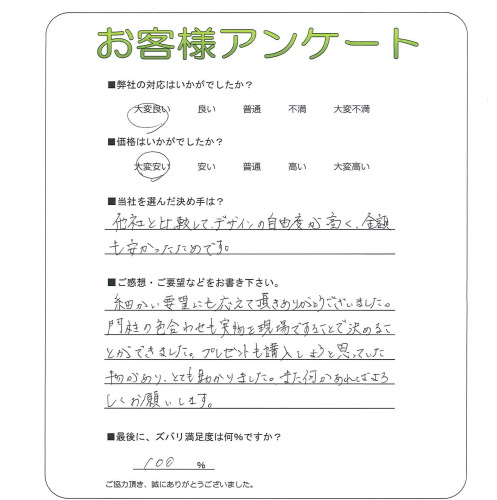 お客様アンケート
■弊社の対応はいかがでしたか？
大変良い 良い 普通 不満 大変不満
■価格はいかがでしたか？
大変安い 安い 普通 高い 大変高い
■当社を選んだ決め手は？
他社と比較して、デザインの自由度が高く、金額
も安かったためです。
■ご感想・ご要望などをお書き下さい。
細かい要望にも応えて頂きありがとうございました。
門柱の色合わせも実物を現場ですることで決めるこ
とができました。プレゼントも購入しようと思っていた
物があり、とても助かりました。また何かあればよろ
しくお願いします。
■最後に、ズバリ満足度は何%ですか？
100 %
ご協力頂き、誠にありがとうございました。